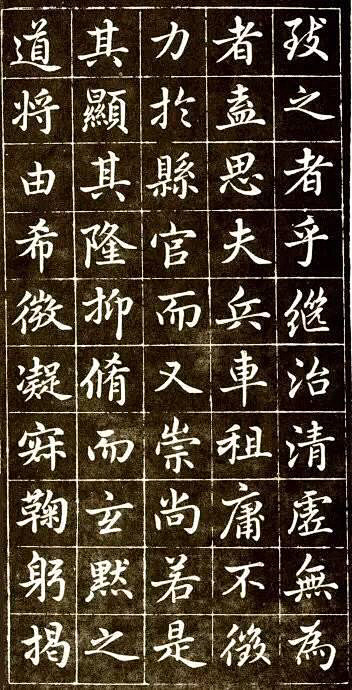 致之者乎继治清虚無為
者盍思夫兵車租庸不徵
力扵縣官而又崇尚若是
其顯其隆抑脩而玄默之
道将由希微凝寂鞠躬揭